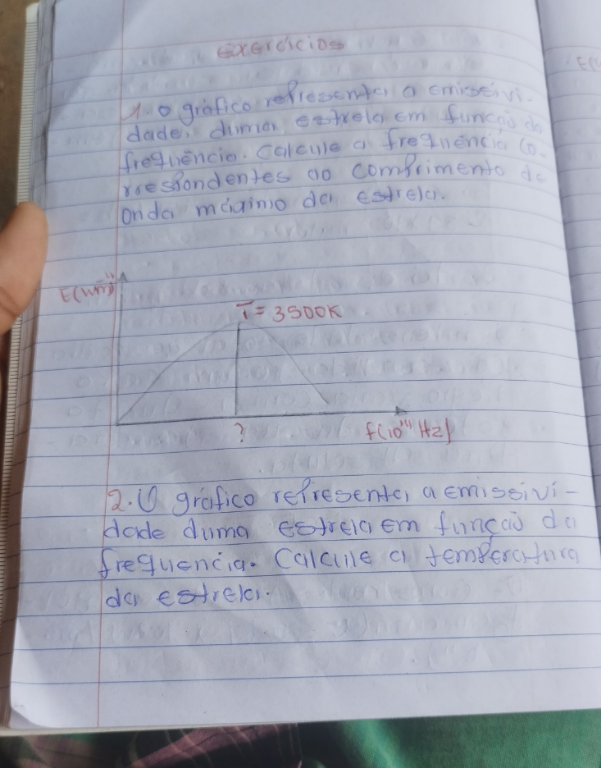 Exercícios
1. O gráfico representa a emissivi-
dade, duma estrela em função da
frequência. Calcule a frequência co-
rrespondentes ao comprimento de
onda máximo da estrela.
T = 3500K
?
f(10¹⁴ Hz)
2. O gráfico representa, a emissivi-
dade duma estrela em função da
frequencia. Calcule a temperatura
da estrela.